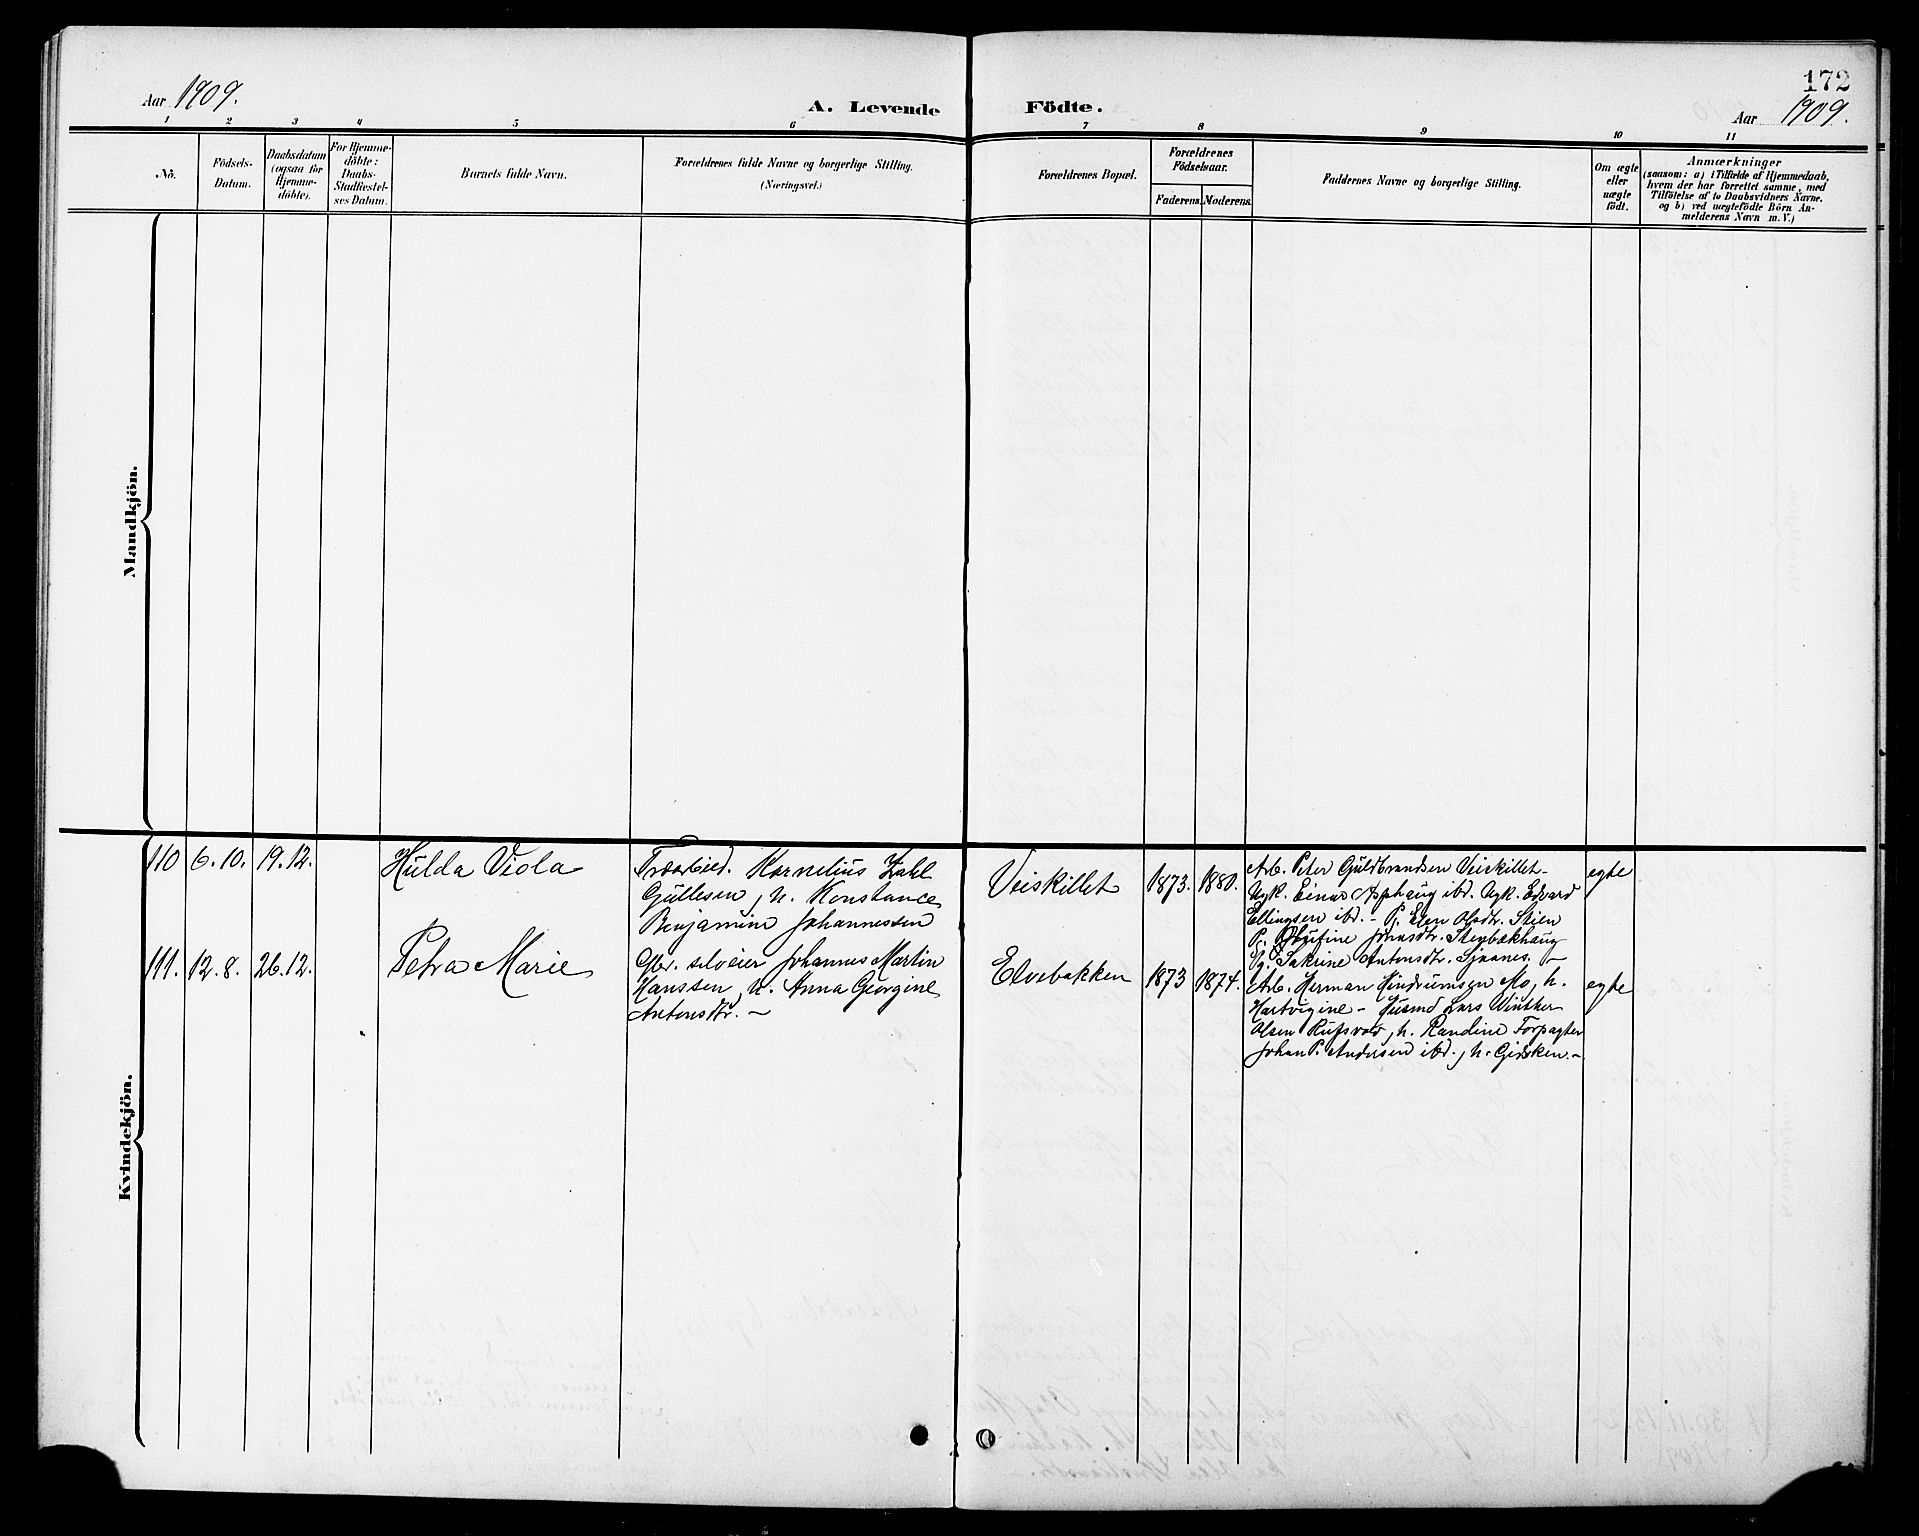 172
Aar 1909.
A. Levende Födte.
Aar 1909.
1 2 3 4 5 6 7 8 9 10 11
No.
Födsels-Datum.
Daabsdatum (ogsaa for Hjemme-döbte).
For Hjemme-döbte: Daabs-Stadfæstel-ses Datum.
Barnets fulde Navn.
Forældrenes fulde Navne og borgerlige Stilling.
(Næringsvei.)
Forældrenes Bopæl.
Forældrenes Födselsaar.
Faderens. Moderens.
Faddernes Navne og borgerlige Stilling.
Om ægte eller uægte födt.
Anmærkninger
(saasom: a) i Tilfælde af Hjemmedaab,
hvem der har forrettet samme, med
Tilföielse af to Daabsvidners Navne.
og b) ved uægtefödte Börn An-
melderens Navn m. V.)
Mandkjön.
Kvindekjön.
110 6.10. 19.12. Hulda Viola
Træarbeid. Kornelius Zahl
Gullesen, h. Konstance
Benjamine Johannessen
Veiskillet 1873. 1880.
Arb. Peter Guldbrandsen Veiskillet-
Ugk. Einar Apphaug ibd. Ugk. Edvard
Ellingsen ibd. - P. Elen Olsdtr. Skien
P. Jörnsdtr. Stenbækhaug
Pg. Sakrine Antonsdtr. Sjaanes. -
egte
111. 12.8. 26.12. Petra Marie
Gbr. selveier Johannes Martin
Hanssen, h. Anna Georgine
Antonsdtr. -
Elvebakken 1873 1874.
Arb. Herman Hindrumsen Mo, h.
Hartvigine - Husmd Lars Winther
Olsen Rufsvold, h. Randine Forpagter
Johan P. Andersen ibd., h. Gidsken. -
egte